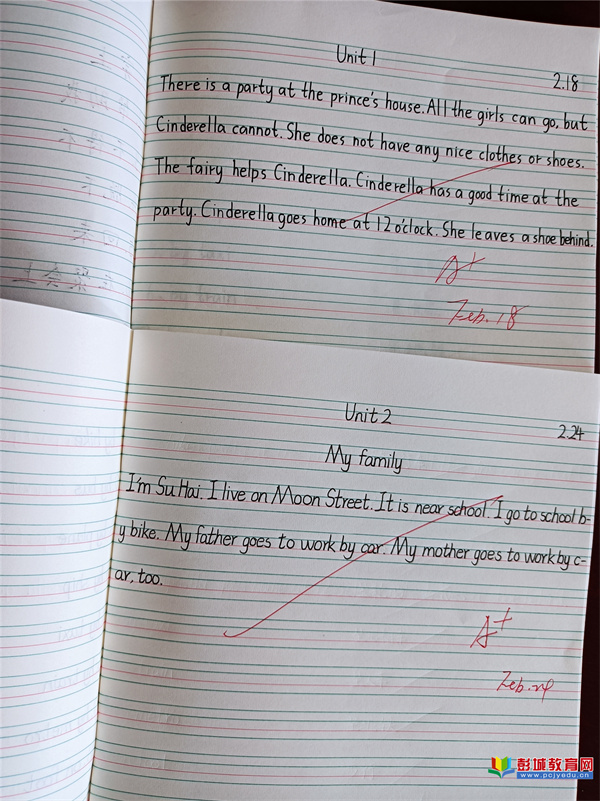 Unit 1
2.18
There is a party at the prince's house. All the girls can go, but
Cinderella cannot. She does not have any nice clothes or shoes.
The fairy helps Cinderella. Cinderella has a good time at the
party. Cinderella goes home at 12 o'clock. She leaves a shoe behind.
A+
Feb. 18
Unit 2
2.24
My family
I'm Su Hai. I live on Moon Street. It is near school. I go to school b-
y bike. My father goes to work by car. My mother goes to work by c-
ar, too.
A+
Feb. 24
彭城教育网
www.pcjyedu.cn